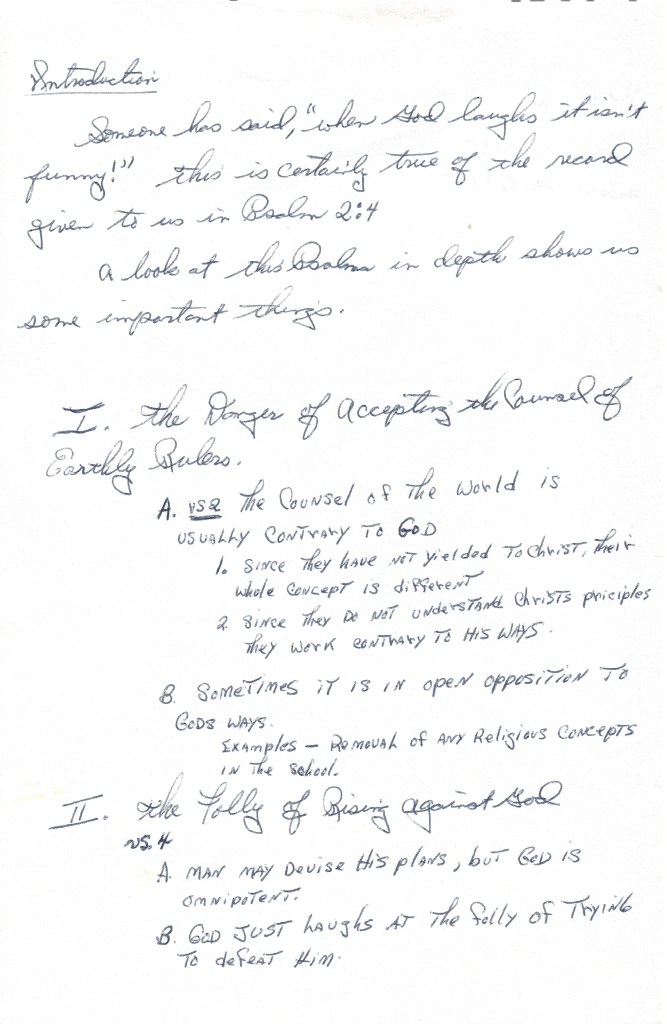 Introduction
Someone has said, "when God laughs it isn't
funny!" this is certainly true of the record
given to us in Psalm 2:4
a look at this Psalm in depth shows us
some important things.
I. the Danger of Accepting the Counsel of
Earthly Rulers.
A. vs 2 The Counsel of The World is
usually contrary to God
1. Since they have not yielded to Christ, their
whole concept is different
2. Since they do not understand Christs priciples
they work contrary to His ways.
B. Sometimes it is in open opposition to
Gods ways.
Examples - Removal of any Religious Concepts
in the School.
II. the Folly of Rising against God
vs. 4
A. Man may devise his plans, but God is
omnipotent.
B. God just laughs at the folly of trying
to defeat Him.